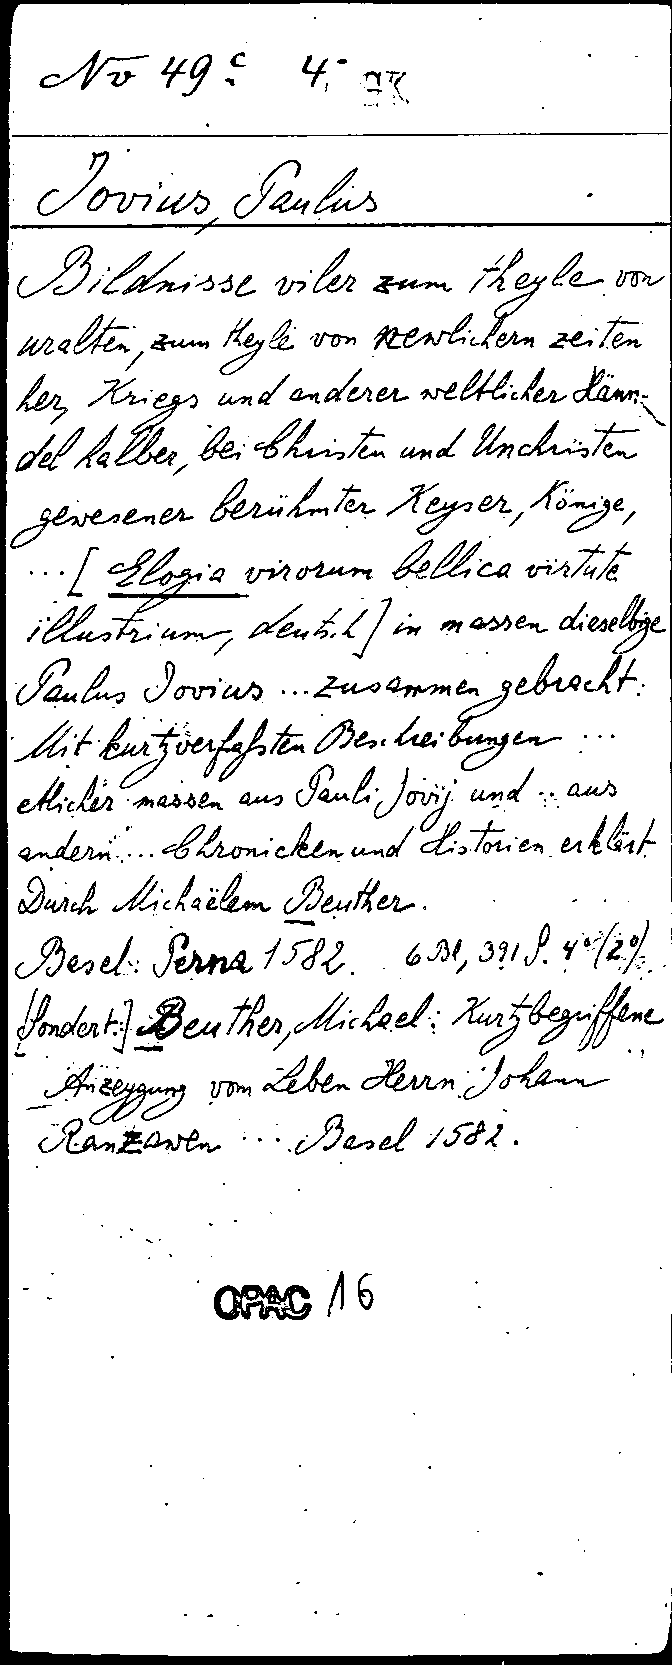 No 49 c 4° gR
Jovius, Paulus
Bildnisse viler zum theyle von
uralten, zum theyle von newlichern zeiten
her, Kriegs und anderer weltlicher Hänn-
del halber, bei Christen und Unchristen
gewesener berühmter Keyser, Könige,
... [Elogia virorum bellica virtute
illustrium, deutsch] in massen dieselbige
Paulus Jovius ... zusammen gebracht:
Mit kurtzverfaßten Beschreibungen ...
etlicher massen aus Pauli Jovij und .. aus
andern ... Chronicken und Historien erklärt
Durch Michaëlem Beuther.
Basel: Perna 1582. 6 Bl, 391 S. 4° (2°)
[Sondert.:] Beuther, Michael: Kurtzbegriffene
Anzeygung vom Leben Herrn Johann
Ranzawen ... Basel 1582.
OPAC 16